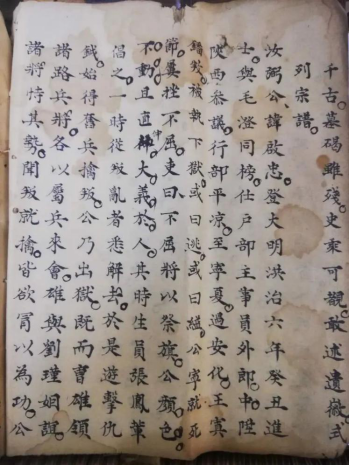 千古。墓碣雖殘。史乘可觀。敢述遺徽。式
列宗譜。
汝弼公諱啟忠。登大明洪治六年癸丑進
士。與毛澄同榜。仕戶部主事員外郎中。陞
陝西參議。行部平凉。至寧夏。遇安化王寘
鐇叛。被執下獄。或曰逃。或曰縊。公寧就死
節。囊挫不屈。吏曰。不屈將以祭旗。公顏色
不動。且直陳大義於人。其時生員張鳳華
倡之。一時從叛亂者悉解去。於是遊擊仇
鉞始得奮兵擒叛。公乃出獄。既而曹雄領
諸路兵將。各以屬兵來會。雄與劉瑾姻誼。
諸將恃其勢。聞叛就擒。皆欲冒以為功。公